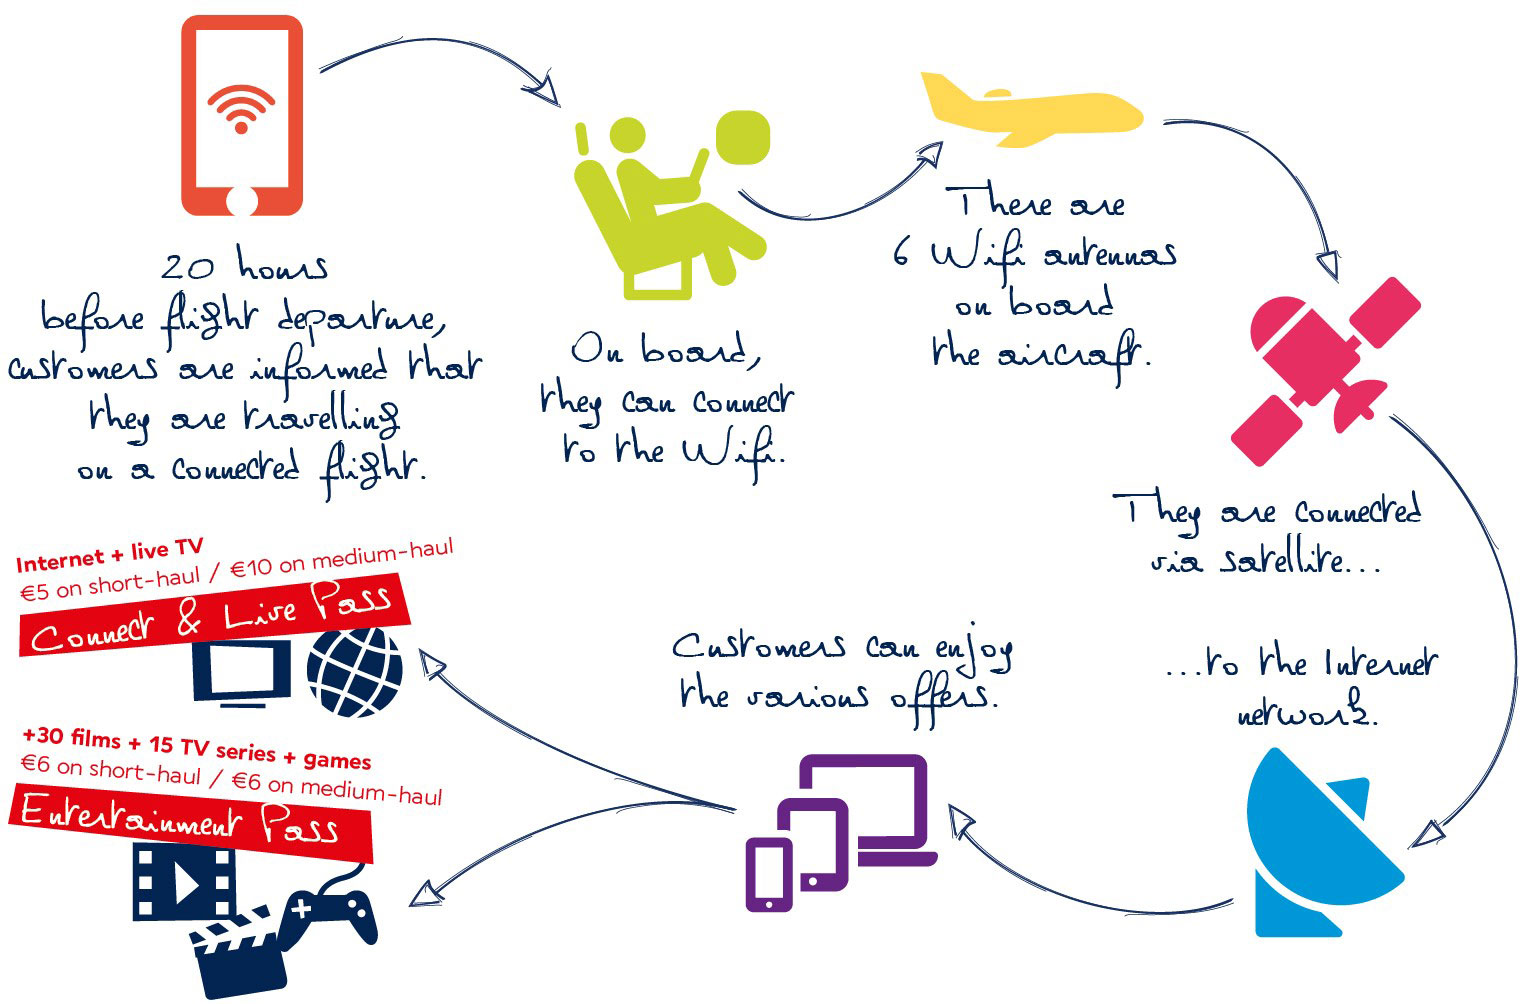 20 hours
before flight departure,
customers are informed that
they are travelling
on a connected flight.
On board,
they can connect
to the Wifi.
There are
6 Wifi antennas
on board
the aircraft.
They are connected
via satellite...
...to the Internet
network.
Customers can enjoy
the various offers.
Internet + live TV
€5 on short-haul / €10 on medium-haul
Connect & Live Pass
+30 films + 15 TV series + games
€6 on short-haul / €6 on medium-haul
Entertainment Pass